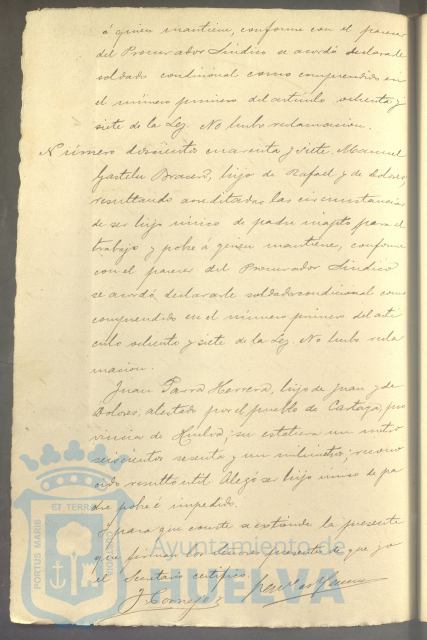 á quien mantiene, conforme con el parecer
del Procurador Síndico se acordó declararle
soldado condicional como comprendido en
el número primero del artículo ochenta y
siete de la Ley. No hubo reclamacion.
Número doscientos cuarenta y siete. Manuel
hijo de Rafael y de Dolores,
resultando acreditadas las circunstancias
de ser hijo único de padre inapto para el
trabajo y pobre á quien mantiene, conforme
con el parecer del Procurador Síndico
se acordó declararle soldado condicional como
comprendido en el número primero del artí
culo ochenta y siete de la Ley. No hubo recla
macion.
Juan Parra Herrera, hijo de Juan y de
Dolores, alistado por el pueblo de Cartaya, pro
vincia de Huelva; su estatura un metro
seiscientos sesenta y un milimetros; recono
cido resultó util. Alegó ser hijo único de pa
dre pobre é impedido.
Y para que conste se extiende la presente
que firman los señores presentes de que yo
el Secretario certifico.
J. Cornejo
PORTUS MARIS
ET TERRAE
CUSTODIA
Ayuntamiento de
HUELVA